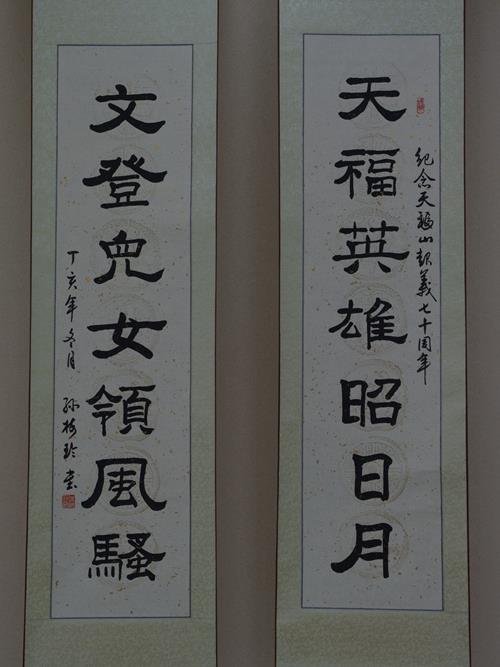 纪念天福山起義七十周年
天福英雄昭日月
文登兒女領風騷
丁亥年冬月 孫梅玲書